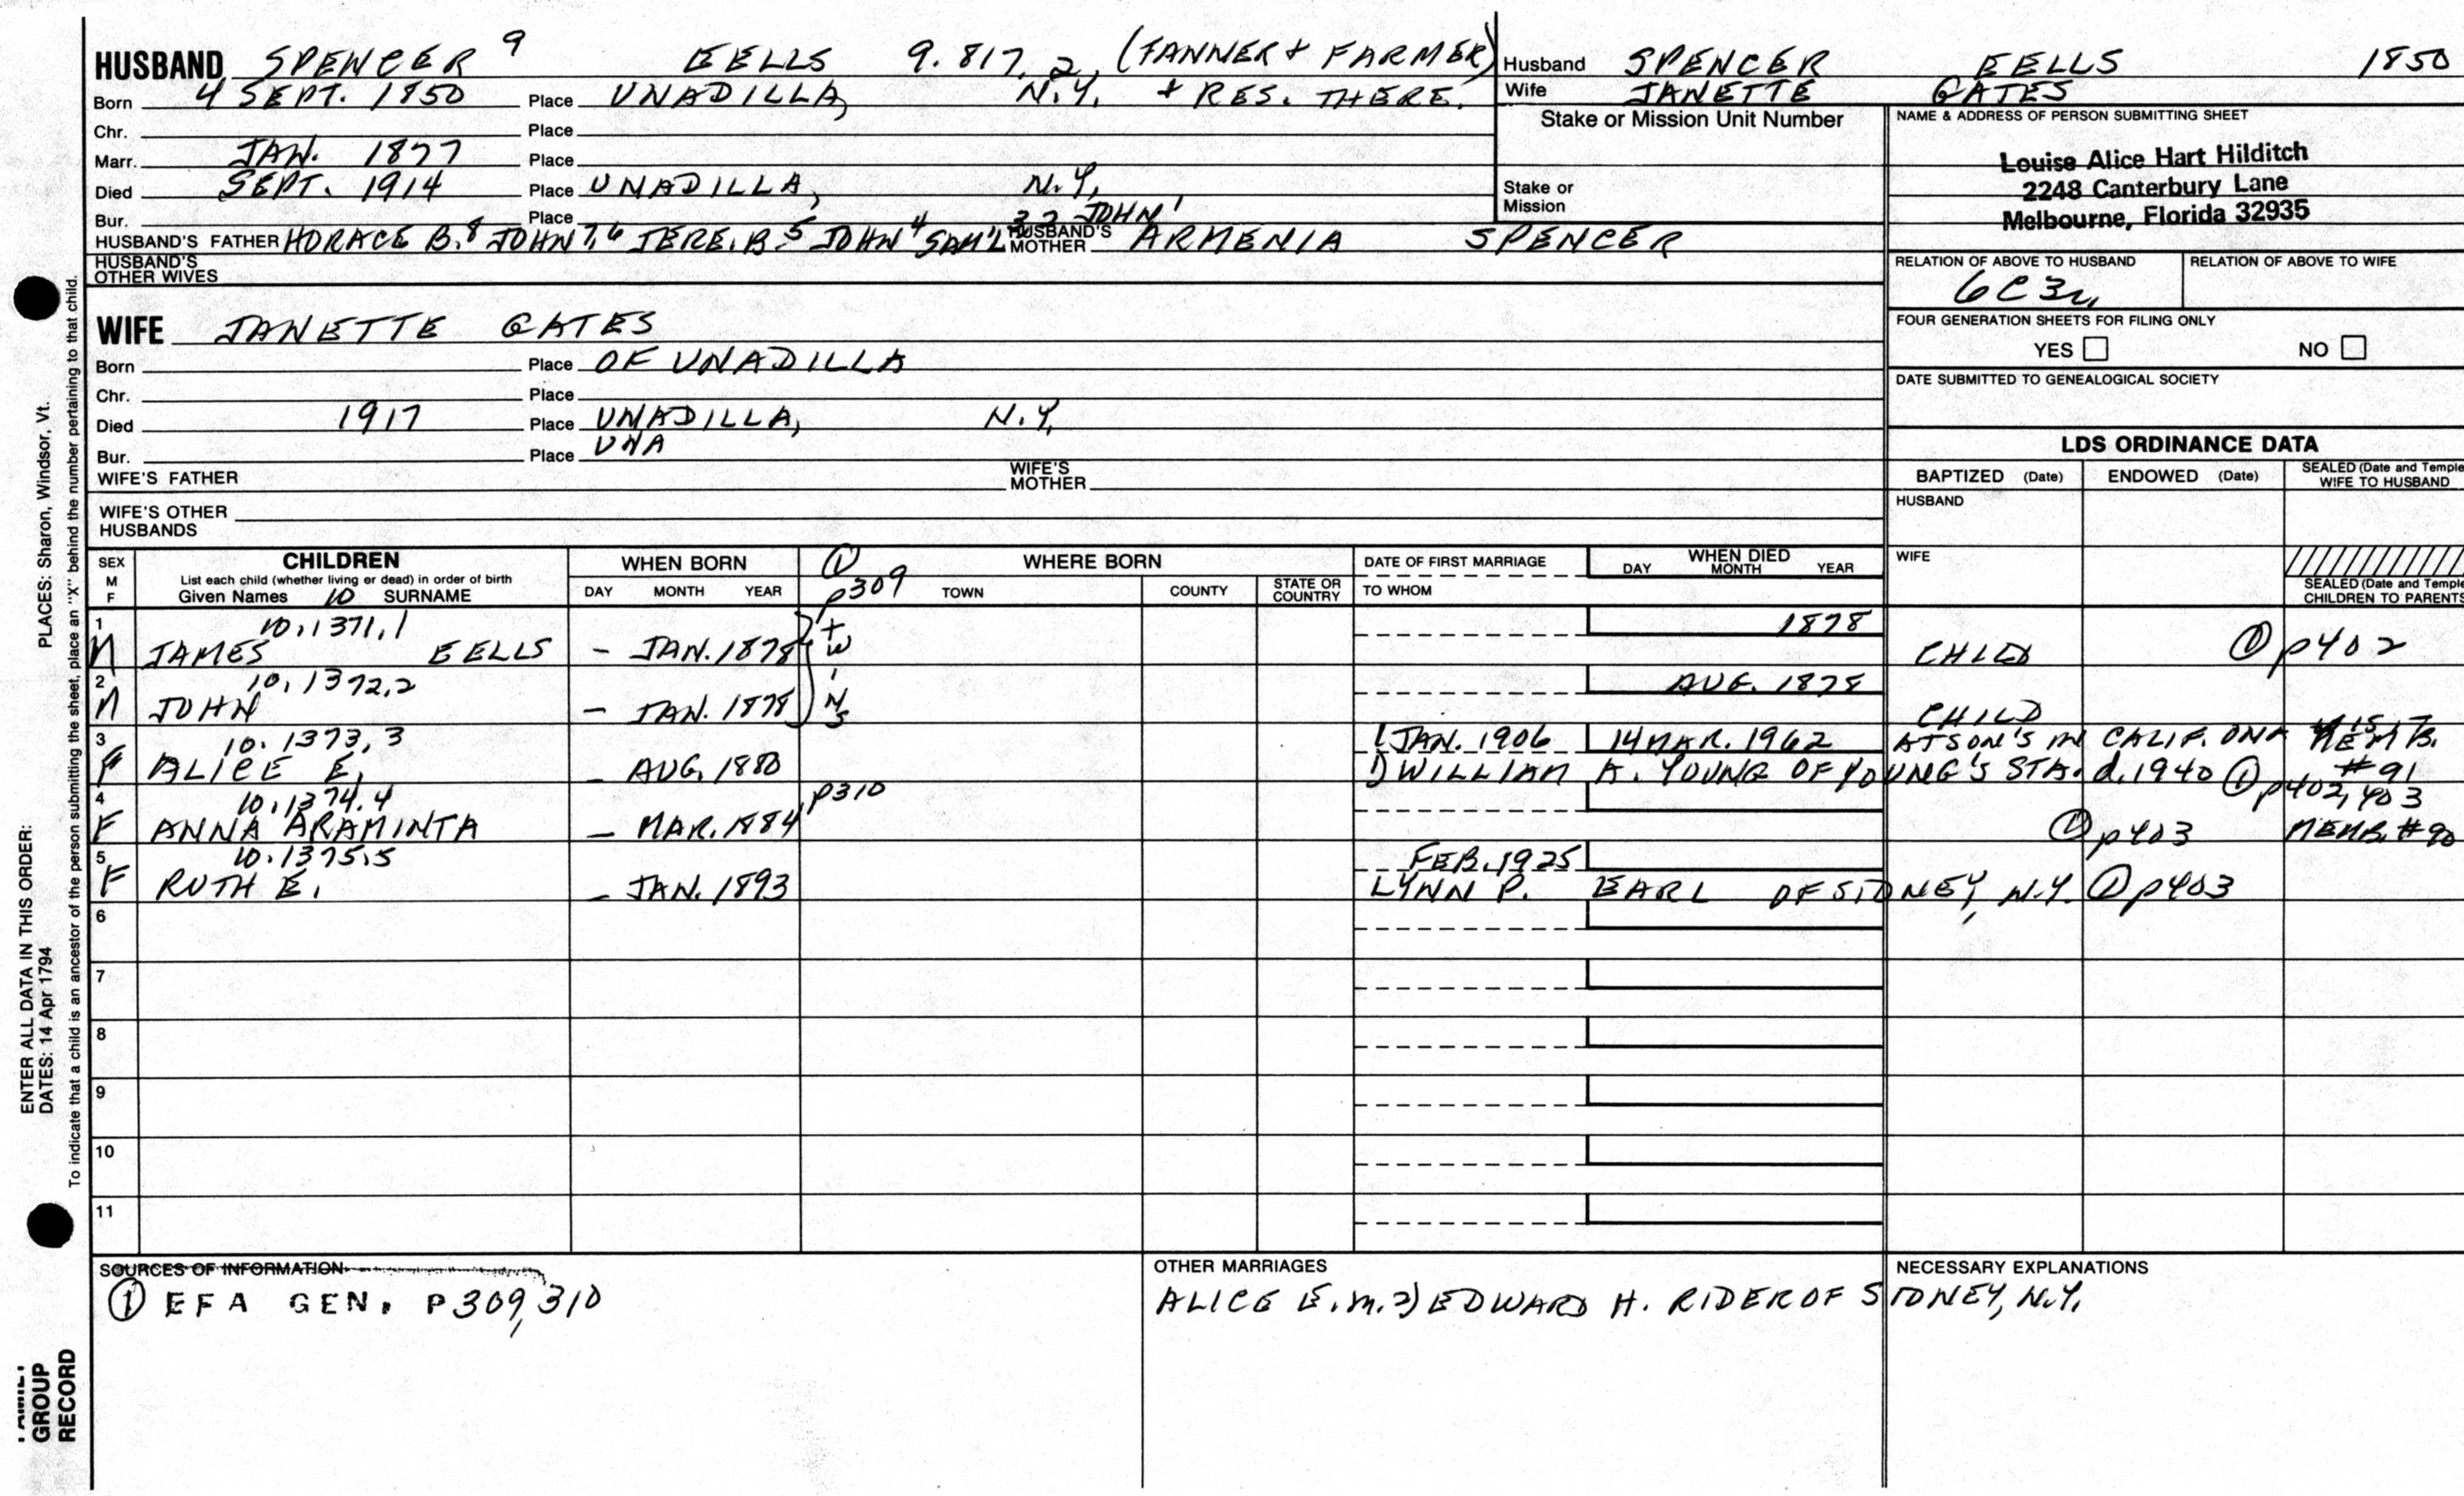 HUSBAND SPENCER 9 EELLS 9.817.2 (TANNER + FARMER)
Born 4 SEPT. 1850 Place UNADILLA, N.Y. + RES. THERE.
Chr. Place
Marr. JAN. 1877 Place
Died SEPT. 1914 Place UNADILLA, N.Y.
Bur. Place
HUSBAND'S FATHER HORACE B.8 JOHN 7,6 JERE. B.5 JOHN 4 SAM'L 3 2 JOHN 1 HUSBAND'S MOTHER ARMENIA SPENCER
HUSBAND'S OTHER WIVES
Husband SPENCER EELLS 1850
Wife JANETTE GATES
Stake or Mission Unit Number
Stake or Mission
NAME & ADDRESS OF PERSON SUBMITTING SHEET
Louise Alice Hart Hilditch
2248 Canterbury Lane
Melbourne, Florida 32935
RELATION OF ABOVE TO HUSBAND RELATION OF ABOVE TO WIFE
6C3r
FOUR GENERATION SHEETS FOR FILING ONLY
YES NO
DATE SUBMITTED TO GENEALOGICAL SOCIETY
WIFE JANETTE GATES
Born Place OF UNADILLA
Chr. Place
Died 1917 Place UNADILLA, N.Y.
Bur. Place UNA
WIFE'S FATHER WIFE'S MOTHER
WIFE'S OTHER HUSBANDS
LDS ORDINANCE DATA
BAPTIZED (Date) ENDOWED (Date) SEALED (Date and Temple
WIFE TO HUSBAND
HUSBAND
WIFE
SEALED (Date and Temple
CHILDREN TO PARENTS
SEX M F
CHILDREN
List each child (whether living or dead) in order of birth
Given Names 10 SURNAME
WHEN BORN
DAY MONTH YEAR
① p309
WHERE BORN
TOWN COUNTY STATE OR COUNTRY
DATE OF FIRST MARRIAGE
TO WHOM
WHEN DIED
DAY MONTH YEAR
1 10.1371.1 1878
M JAMES EELLS - JAN. 1878 TWINS CHILD ① p402
2 10.1372.2 AUG. 1878
M JOHN - JAN. 1878 CHILD
3 10.1373.3 1 JAN. 1906 14 MAR. 1962 ATSON'S IN CALIF. MEMB.
F ALICE E. - AUG. 1880 1) WILLIAM A. YOUNG OF YOUNG'S STA. d. 1940 ① p402,403 #91
4 10.1374.4 p310
F ANNA ARAMINTA - MAR. 1884 ① p403 MEMB. #90
5 10.1375.5 FEB. 1925
F RUTH E. - JAN. 1893 LYNN P. EARL OF SIDNEY, N.Y. ① p403
6
7
8
9
10
11
SOURCES OF INFORMATION
① EFA GEN. P309,310
OTHER MARRIAGES
ALICE E. m. 2) EDWARD H. RIDER OF SIDNEY, N.Y.
NECESSARY EXPLANATIONS
ENTER ALL DATA IN THIS ORDER:
DATES: 14 Apr 1794 PLACES: Sharon, Windsor, Vt.
To indicate that a child is an ancestor of the person submitting the sheet, place an "X" behind the number pertaining to that child.
GROUP
RECORD